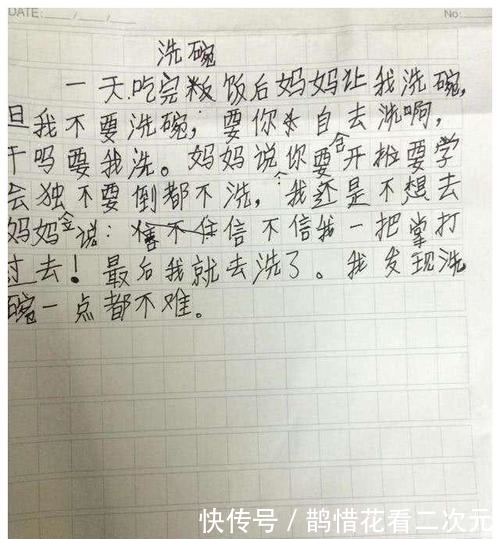 DATE: / /
No:
洗碗
一天,吃完粄饭后妈妈让我洗碗,
但我不要洗碗,要你自去洗啊,
干吗要我洗。妈妈说你要含开始要学
会独不要倒都不洗,我还是不想去
妈妈说:信不信我一把掌打
过去!最后我就去洗了。我发现洗
碗一点都不难。
快传号/鹊惜花看二次元